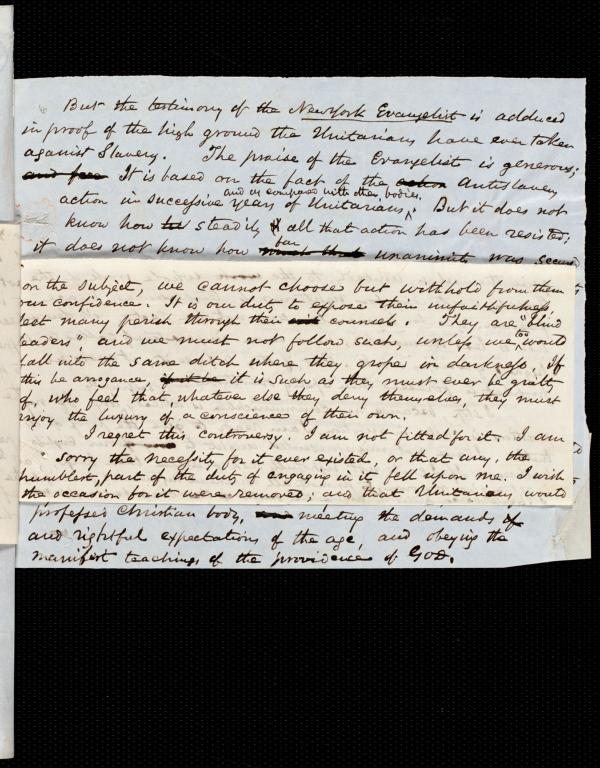 But the testimony of the New York Evangelist is adduced
in proof of the high ground the Unitarians have ever taken
against Slavery. The praise of the Evangelist is generous;
and free It is based on the fact of the action Antislavery
and as compared with other bodies.
action in successive years of Unitarians, But it does not
know how steadily all that action has been resisted;
far
it does not know how much that unanimity was secured
on the subject, we cannot choose but withhold from them
our confidence. It is our duty to expose their unfaithfulness,
lest many perish through their counsels. They are "blind
leaders", and we must not follow such, unless we, too, would
fall into the same ditch where they grope in darkness. If
this be arrogance, if it be it is such as they must ever be guilty
of, who feel that, whatever else they deny themselves, they must
enjoy the luxury of a conscience of their own.
I regret this controversy. I am not fitted for it. I am
sorry the necessity for it ever existed, or that any, the
humblest, part of the duty of engaging in it fell upon me. I wish
the occasion for it were removed; and that Unitarians would
professed Christian body, meeting the demands
and rightful expectations of the age, and obeying the
manifest teachings of the providence of God.